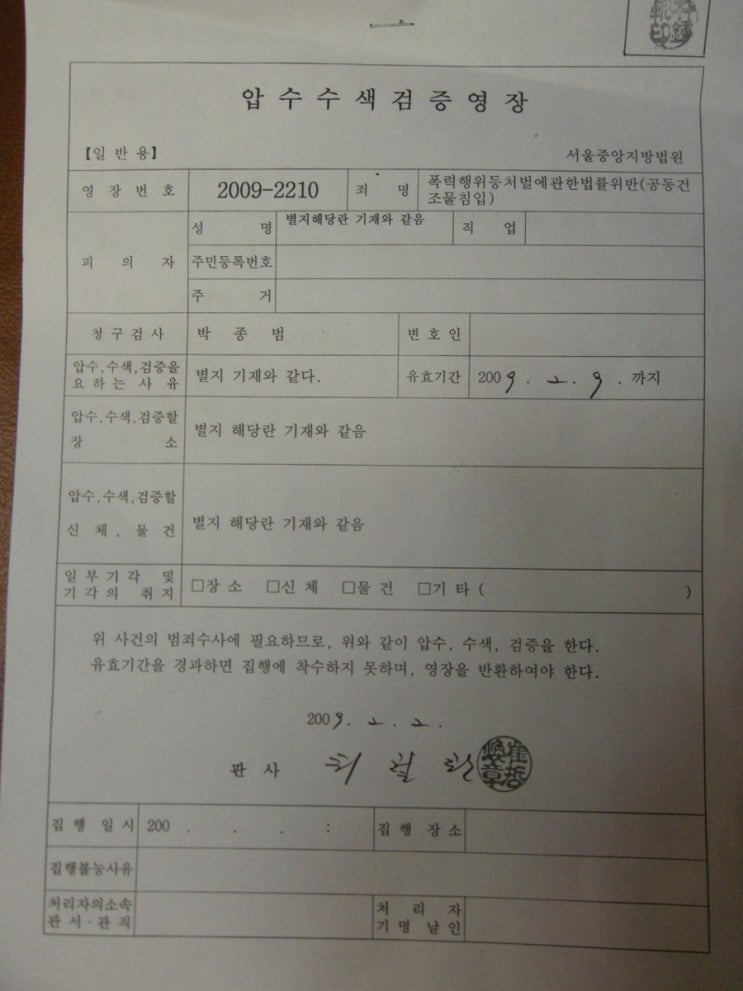 압수수색검증영장
【일반용】 서울중앙지방법원
영장번호 2009-2210 죄명 폭력행위등처벌에관한법률위반(공동건
조물침입)
피의자 성명 별지해당란 기재와 같음 직업
주민등록번호
주거
청구검사 박종범 변호인
압수,수색,검증을
요하는 사유 별지 기재와 같다. 유효기간 2009. 2. 9. 까지
압수,수색,검증할
장소 별지 해당란 기재와 같음
압수,수색,검증할
신체, 물건 별지 해당란 기재와 같음
일부기각 및
기각의 취지 □장소 □신체 □물건 □기타 ( )
위 사건의 범죄수사에 필요하므로, 위와 같이 압수, 수색, 검증을 한다.
유효기간을 경과하면 집행에 착수하지 못하며, 영장을 반환하여야 한다.
2009. 2. 2.
판사 최철환 崔哲煥章
집행일시 200 . . . : 집행장소
집행불능사유
처리자의소속
관서·관직 처리자
기명날인